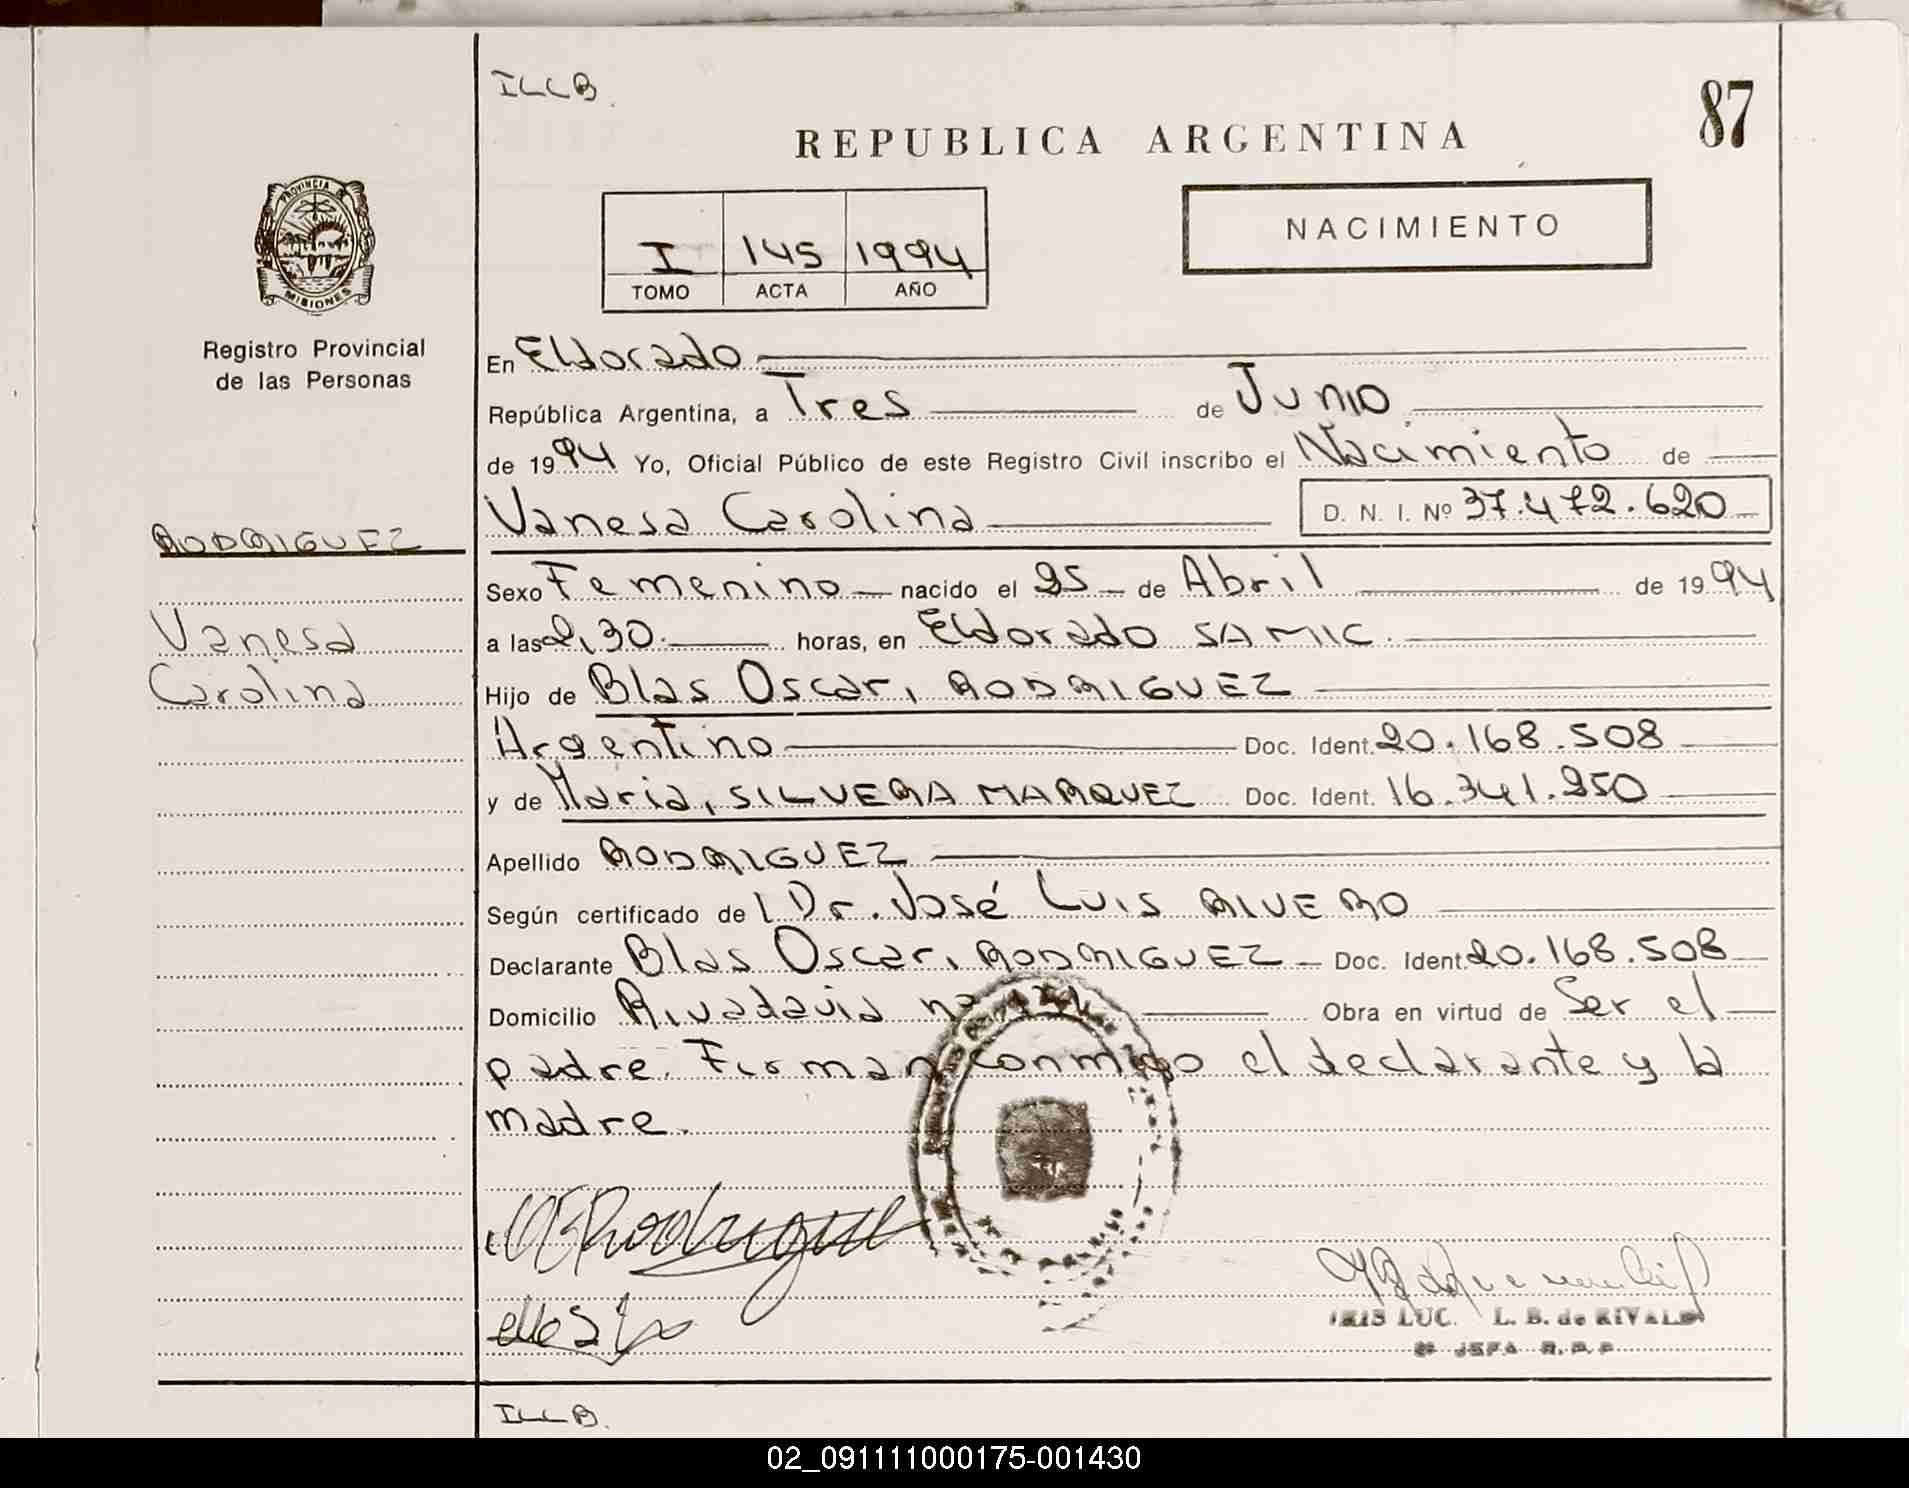 ILLB.
87
REPUBLICA ARGENTINA
PROVINCIA DE
MISIONES
NACIMIENTO
I 145 1994
TOMO ACTA AÑO
Registro Provincial
de las Personas
RODRIGUEZ
Vanesa
Carolina
En Eldorado
República Argentina, a Tres de Junio
de 1994 Yo, Oficial Público de este Registro Civil inscribo el Nacimiento de
Vanesa Carolina D. N. I. Nº 37.472.620
Sexo Femenino nacido el 25 de Abril de 1994
a las 2,30 horas, en Eldorado SAMIC.
Hijo de Blas Oscar, RODRIGUEZ
Argentino Doc. Ident. 20.168.508
y de Maria, SILVERA MARQUEZ Doc. Ident. 16.341.250
Apellido RODRIGUEZ
Según certificado del Dr. José Luis RIVERO
Declarante Blas Oscar, RODRIGUEZ Doc. Ident. 20.168.508
Domicilio Rivadavia nº Obra en virtud de Ser el
padre. Firman conmigo el declarante y la
madre.
Rodriguez
IRIS LUC. L. B. de RIVALDI
JEFA R.P.P.
ILLB.
02_091111000175-001430